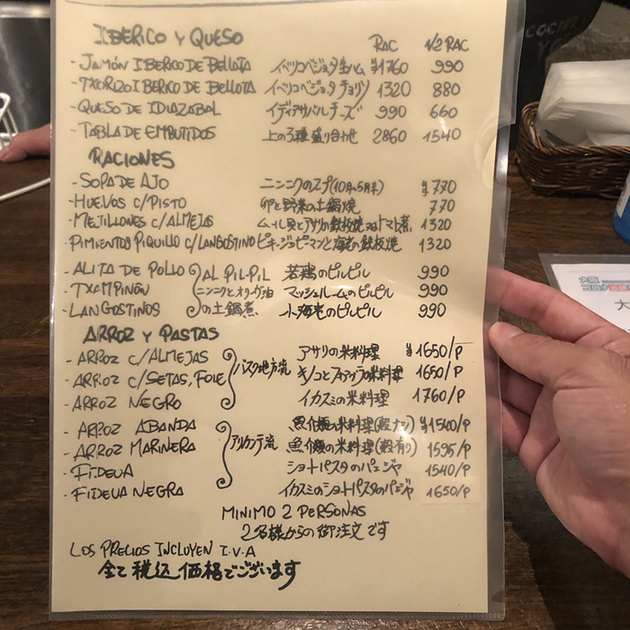 IBERICO Y QUESO RAC 1/2 RAC
- JAMÓN IBERICO DE BELLOTA イベリコベジョタ生ハム ¥1760 990
- TXORIZO IBERICO DE BELLOTA イベリコベジョタチョリソ 1320 880
- QUESO DE IDIAZABAL イディアサバルチーズ 990 660
- TABLA DE EMBUTIDOS 上の3種盛り合わせ 2860 1540
RACIONES
- SOPA DE AJO ニンニクのスープ(10月〜5月末) ¥770
- HUEVOS C/PISTO 卵と野菜の土鍋焼 770
- MEJILLONES C/ALMEJAS ムール貝とアサリの鉄板焼 トマト煮 1320
- PIMIENTOS PIQUILLO C/LANGOSTINO ピキージョピーマンと海老の鉄板焼 1320
- ALITA DE POLLO AL PIL-PIL 若鶏のピルピル 990
- TXAMPIÑON ニンニクとオリーヴ油 マッシュルームのピルピル 990
- LANGOSTINOS の土鍋煮 小海老のピルピル 990
ARROZ Y PASTAS
- ARROZ C/ALMEJAS アサリの米料理 ¥1650/P
- ARROZ C/SETAS, FOIE バスク地方流 キノコとフォアグラの米料理 1650/P
- ARROZ NEGRO イカスミの米料理 1760/P
- ARROZ ABANDA 魚介類の米料理(殻ナシ) ¥1540/P
- ARROZ MARINERA アリカンテ流 魚介類の米料理(殻有り) 1595/P
- FIDEUA ショートパスタのパエジャ 1540/P
- FIDEUA NEGRA イカスミのショートパスタのパエジャ 1650/P
MINIMO 2 PERSONAS
2名様からの御注文です
LOS PRECIOS INCLUYEN I.V.A
全て税込価格でございます
大阪
大